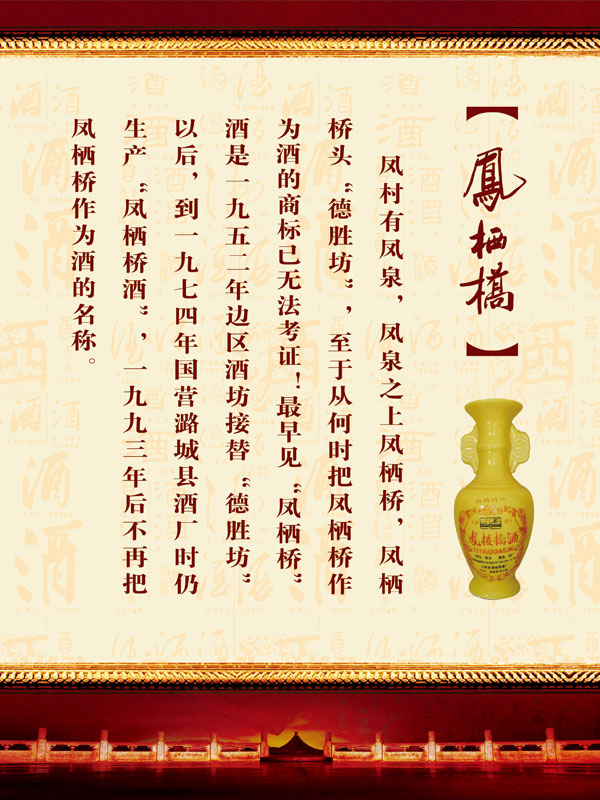 【鳳栖橋】
凤村有凤泉，凤泉之上凤栖桥，凤栖
桥头“德胜坊”，至于从何时把凤栖桥作
为酒的商标已无法考证！最早见“凤栖桥”
酒是一九五二年边区酒坊接替“德胜坊”
以后，到一九七四年国营潞城县酒厂时仍
生产“凤栖桥酒”，一九九三年后不再把
凤栖桥作为酒的名称。
山西特产
鳳棲橋酒